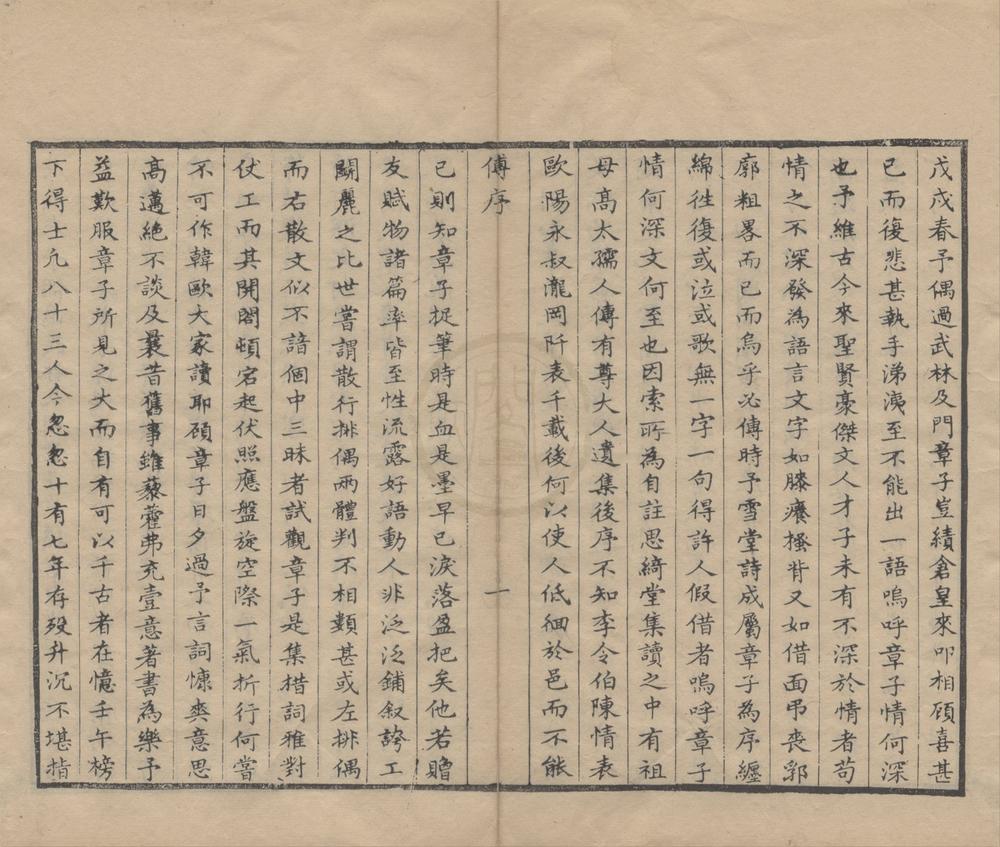 戊戌春予偶過武林及門章子豈績倉皇來叩相顧喜甚
已而復悲甚執手涕洟至不能出一語嗚呼章子情何深
也予維古今來聖賢豪傑文人才子未有不深於情者苟
情之不深發為語言文字如膝癢搔背又如借面弔喪郛
廓粗畧而已而烏乎必傳時予雪堂詩成屬章子為序纏
綿徃復或泣或歌無一字一句得許人假借者嗚呼章子
情何深文何至也因索所為自註思綺堂集讀之中有祖
母高太孺人傳有尊大人遺集後序不知李令伯陳情表
歐陽永叔瀧岡阡表千載後何以使人低徊於邑而不能
傅序
一
已則知章子捉筆時是血是墨早已淚落盈把矣他若贈
友賦物諸篇率皆至性流露好語動人非泛泛鋪叙誇工
鬭麗之比世嘗謂散行排偶兩體判不相類甚或左排偶
而右散文似不諳個中三昧者試觀章子是集措詞雅對
仗工而其開闔頓宕起伏照應盤旋空際一氣折行何嘗
不可作韓歐大家讀耶顧章子日夕過予言詞慷爽意思
高邁絕不談及曩昔舊事雖藜藿弗充壹意著書為樂予
益歎服章子所見之大而自有可以千古者在憶壬午榜
下得士凢八十三人今忽忽十有七年存歿升沉不堪指